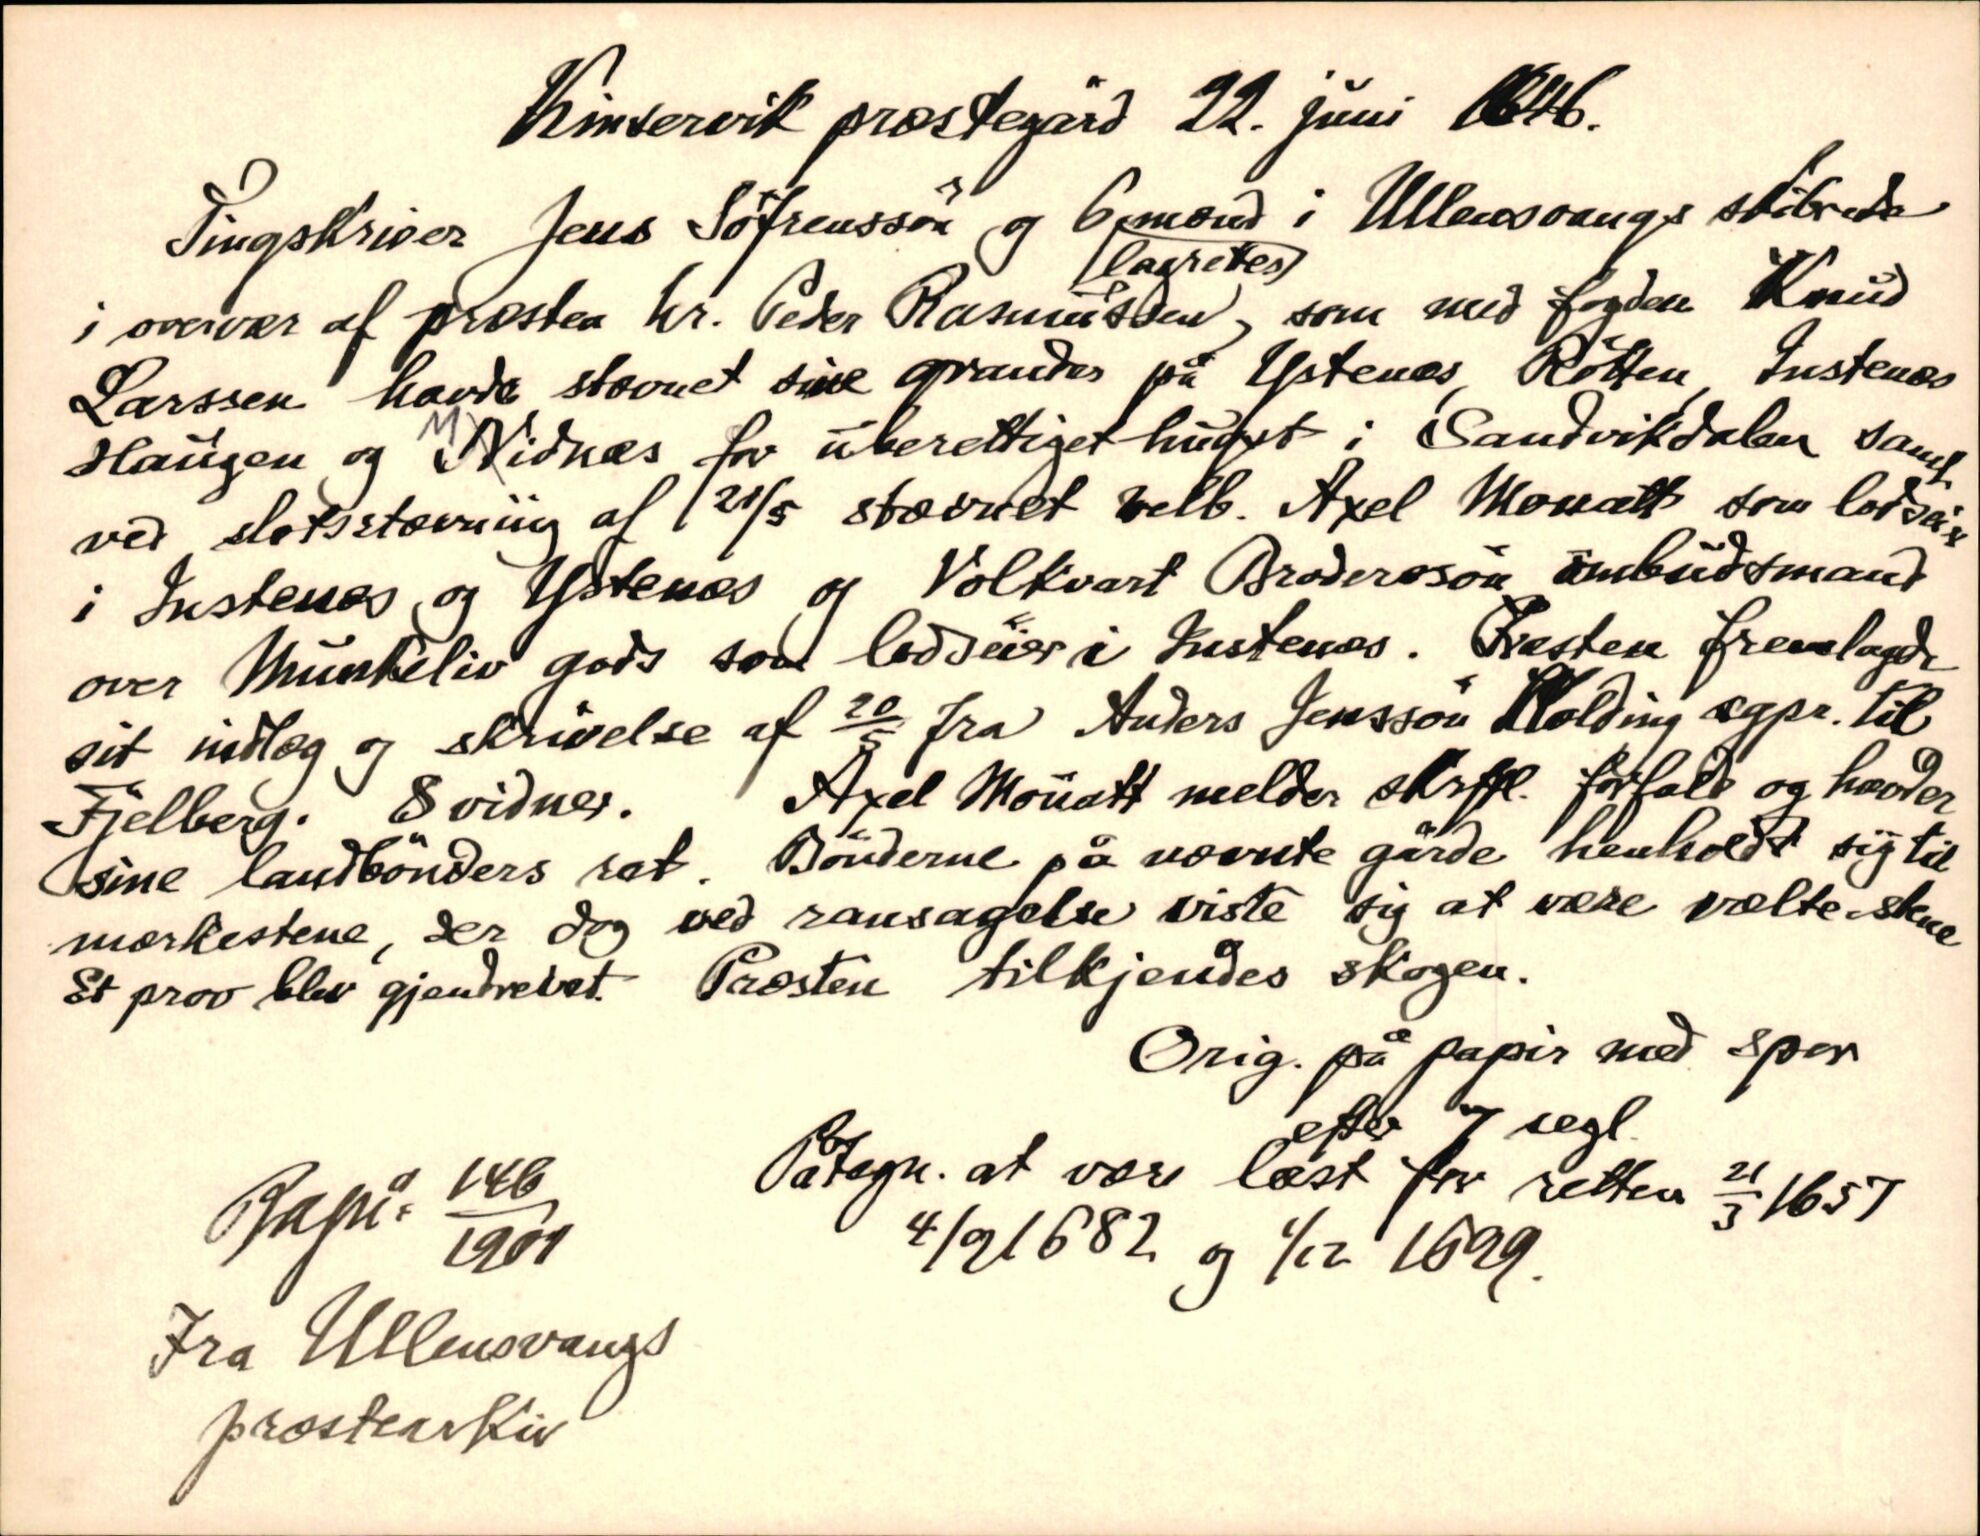 Kinservik præstegård 22. juni 1646.
Tingskriver Jens Söfrenssön og 6 lagrettes mænd i Ullensvangs skibrede
i overvær af præsten hr. Peder Rasmussen, som med fogden Knud
Larssen havde stævnet sine grander på Ystenæs, Rötten, Instenæs
Haugen og Nidnæs for uberettiget hugst i Sandvikdalen samt
ved slotsstævning af 21/5 stævnet velb. Axel Mouatt som lodseier
i Instenæs og Ystenæs og Volkvart Broderssön ombudsmand
over Munkeliv gods som lodseier i Instenæs. Præsten fremlagde
sit indlæg og skrivelse af 20/5 fra Anders Jenssön Kolding sgpr. til
Fjelberg. 8 vidner. Axel Mouatt melder skrftl. forfald og hævder
sine landbönders ret. Bönderne på nævnte gårde henholdt sig til
merkestene, der dog ved ransagelse viste sig at være vælte-stene
Et prov blev gjendrevet. Præsten tilkjendes skogen.
Orig. på papir med spor
efter 7 segl.
Påtegn. at være læst for retten 21/3 1657
4/9 1682 og 1/12 1699.
146/1901
Fra Ullensvangs
præstearkiv